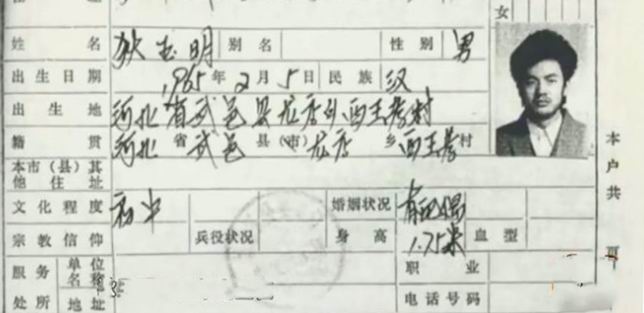 女
姓 名 狄玉明 别名 性别 男
出生日期 1965年2月5日 民族 汉
出生地 河北省武邑县龙店乡西王孝村
籍贯 河北 省 武邑 县(市) 龙店 乡 西王孝 村
本市（县）其他住址
文化程度 初中 婚姻状况 有配偶
宗教信仰 兵役状况 身高 1.75米 血型
服务处所 单位名称 职业
地址 电话号码
本户共 页